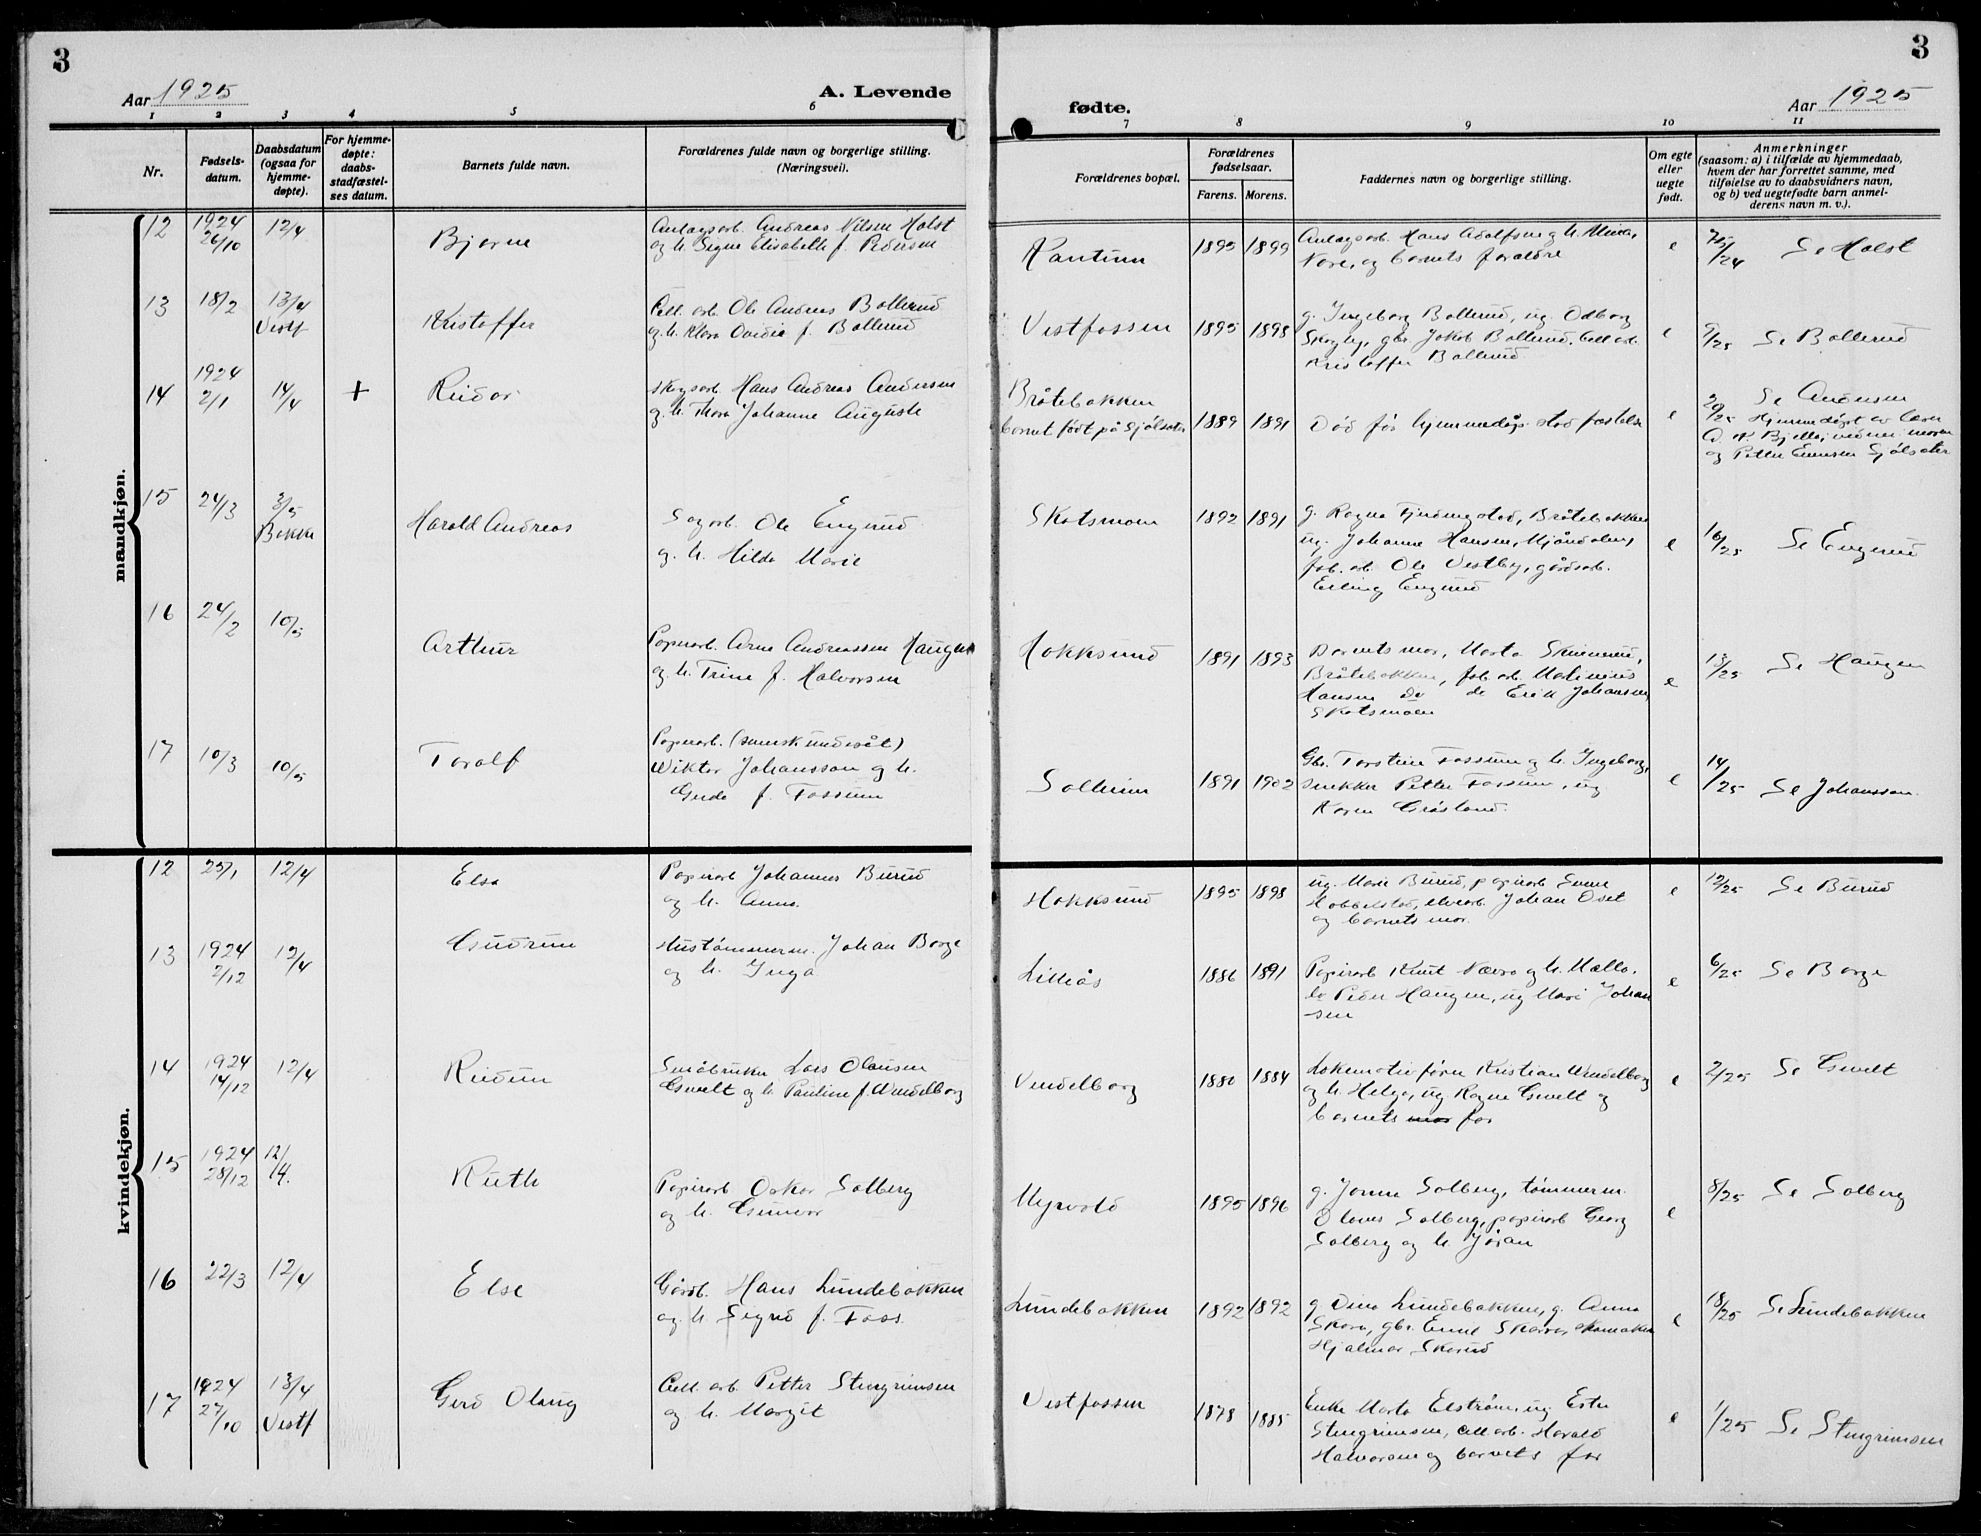 3
Aar 1925
A. Levende
1 2 3 4 5 6
Nr.
Fødsels-
datum.
Daabsdatum
(ogsaa for
hjemme-
døpte).
For hjemme-
døpte:
daabs-
stadfæstel-
ses datum.
Barnets fulde navn.
Forældrenes fulde navn og borgerlige stilling.
(Næringsvei).
mandkjøn.
12 1924 26/10 12/4 Bjarne
Anlagsarb. Andreas Nilsen Holst
og h. Signe Elisabeth f. Pedersen
13 18/2 13/4 Vestf Kristoffer
Cell. arb. Ole Andreas Bollerud
og h. Klara Ovidia f. Bollerud
14 1924 2/1 14/4 + Reidar
Skogsarb. Hans Andreas Andersen
og h. Thora Johanne Auguste
15 24/3 3/5 Bakke Harald Andreas
Sagarb. Ole Engerud
og h. Hilda Marie
16 24/2 10/5 Arthur
Papirarb. Arne Andreassen Haugen
og h. Trine f. Halvorsen
17 10/3 10/5 Toralf
Papirarb. (svensk undersåt)
Wiktor Johansson og h.
Gerda f. Fossum
kvindekjøn.
12 25/1 12/4 Elsa
Papirarb Johannes Burud
og h. Anna
13 1924 2/12 12/4 Gudrun
Hustømmerm. Johan Borge
og h. Inga
14 1924 14/12 12/4 Reidun
Småbruker Lars Olausen
Gsvelt og h. Pauline f. Wendelborg
15 1924 28/12 12/4. Ruth
Papirarb Oskar Solberg
og h. Gunvor
16 22/3 12/4 Else
Gårdb. Hans Lundebakken
og h. Sigrid f. Foss
17 1924 27/10 13/4 Vestf Gerd Olaug
Cell. arb. Petter Stengrimsen
og h. Margit
3
fødte.
Aar 1925
7 8 9 10 11
Forældrenes bopæl.
Forældrenes
fødselsaar.
Farens. Morens.
Faddernes navn og borgerlige stilling.
Om egte
eller
uegte
født.
Anmerkninger
(saasom: a) i tilfælde av hjemmedaab,
hvem der har forrettet samme, med
tilføielse av to daabsvidners navn,
og b) ved uegtefødte barn anmel-
derens navn m. v.).
1895 1899
Anlagsarb. Hans Adolfsen og h.
Nore, og barnets forældre
e /24 Se Holst
Vestfossen 1895 1898
g. Ingeborg Bollerud, ug. Odborg
Skogly, gbr. Jakob Bollerud, Cell arb.
Kristoffer Bollerud
e 9/25 Se Bollerud
Bråtebakken
barnet født på Sjølsæter 1889 1891
Død før hjemmedåps stadfæstelse
e 20/25 Se Andersen
Hjemmedøpt av lærer
Bjella, vidner moren
og Petter Evensen Sjølsæter
Skotsmoen 1892 1891
g. Ragna Tjudingstad, Bråtebakken
ug. Johanne Hansen, Mjøndalen,
fab. arb. Ole Vestby, gårdsarb.
Erling Engerud
e 16/25 Se Engerud
Hokksund 1891 1893
Barnets mor, Marta
Bråtebakken, fab. arb. Matinius
Hansen do do Erik Johansen,
Skotsmoen
e 13/25 Se Haugen
Solheim 1891 1902
Gbr. Torstein Fossum og h. Ingeborg,
snekker Petter Fossum, ug
Karen Gråsland.
e 14/1/25 Se Johansson.
Hokksund 1895 1898
ug. Marie Burud, papirarb Svene
Hobbelstad, elvearb. Johan Oset
og barnets mor.
e 12/25 Se Burud
Lilleås 1886 1891
Papirarb Knut Nævra og h. Malla.
do Peder Haugen, ug Mari Johan
-sen
e 6/25 Se Borge
Vendelborg 1880 1884
Lokomotivfører Kristian Wendelborg
og h. Helga, ug Ragna Gsvelt og
barnets mor far
e 2/25 Se Gsvelt
Myrvold 1895 1896
g. Jonna Solberg, tømmerm.
Olaves Solberg, papirarb Georg
Solberg og h. Jøran
e 8/25 Se Solberg
Lundebakken 1892 1892
g. Dina Lundebakken, g. Anna
Skara, gbr. Emil Skarra, skomaker
Hjalmar Skarud
e 18/25 Se Lundebakken
Vestfossen 1878 1885
Enke Marta Elstrøm, ug Ester
Stengrimsen, Cell arb. Harald
Halvorsen og barnets far
e 1/25 Se Stengrimsen